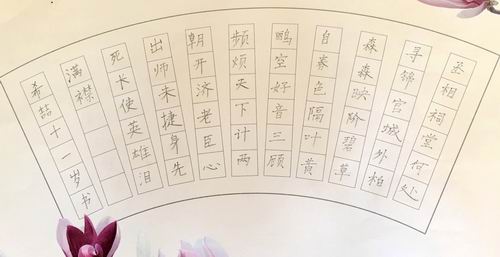 丞相祠堂何处
寻锦官城外柏
森森映阶碧草
自春色隔叶黄
鹂空好音三顾
频烦天下计两
朝开济老臣心
出师未捷身先
死长使英雄泪
满襟
希喆十一岁书